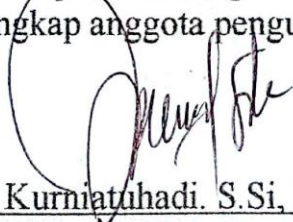 ngkap anggota pengu
Kurniatuhadi. S.Si,